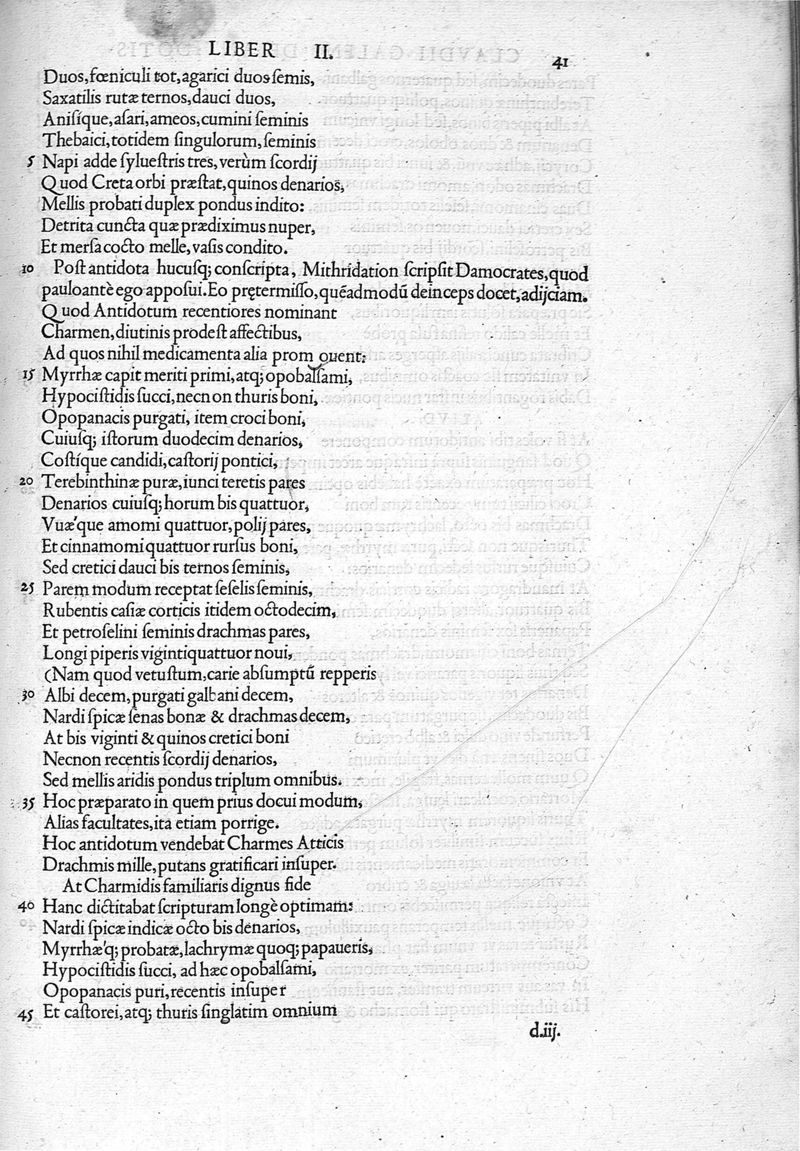 LIBER II. 41
Duos, fœniculi tot, agarici duos semis,
Saxatilis rutæ ternos, dauci duos,
Anisique, asari, ameos, cumini seminis
Thebaici, totidem singulorum, seminis
5 Napi adde syluestris tres, verùm scordij
Quod Creta orbi præstat, quinos denarios,
Mellis probati duplex pondus indito:
Detrita cuncta quæ prædiximus nuper,
Et mersa cocto melle, vasis condito.
10 Post antidota hucusq; conscripta, Mithridation scripsit Damocrates, quod
pauloantè ego apposui. Eo prętermisso, quẽadmodũ deinceps docet, adijciam.
Quod Antidotum recentiores nominant
Charmen, diutinis prodest affectibus,
Ad quos nihil medicamenta alia prom ouent:
15 Myrrhæ capit meriti primi, atq; opobalsami,
Hypocistidis succi, necn on thuris boni,
Opopanacis purgati, item croci boni,
Cuiusq; istorum duodecim denarios,
Costíque candidi, castorij pontici,
20 Terebinthinæ puræ, iunci teretis pares
Denarios cuiusq; horum bis quattuor,
Vuæ'que amomi quattuor, polij pares,
Et cinnamomi quattuor rursus boni,
Sed cretici dauci bis ternos seminis,
25 Parem modum receptat seselis seminis,
Rubentis casiæ corticis itidem octodecim,
Et petroselini seminis drachmas pares,
Longi piperis vigintiquattuor noui,
(Nam quod vetustum, carie absumptũ repperis
30 Albi decem, purgati galbani decem,
Nardi spicæ senas bonæ & drachmas decem,
At bis viginti & quinos cretici boni
Necnon recentis scordij denarios,
Sed mellis aridis pondus triplum omnibus.
35 Hoc præparato in quem prius docui modum,
Alias facultates, ita etiam porrige.
Hoc antidotum vendebat Charmes Atticis
Drachmis mille, putans gratificari insuper.
At Charmidis familiaris dignus fide
40 Hanc dictitabat scripturam longè optimam:
Nardi spicæ indicæ octo bis denarios,
Myrrhæ'q; probatæ, lachrymæ quoq; papaueris,
Hypocistidis succi, ad hæc opobalsami,
Opopanacis puri, recentis insuper
45 Et castorei, atq; thuris singlatim omnium
d.iij.